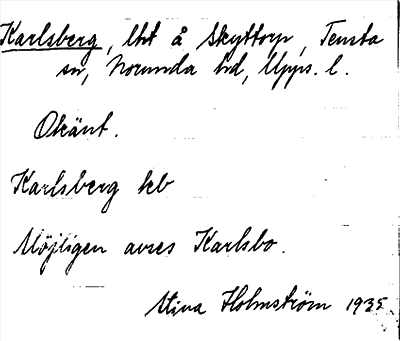 Karlsberg, lht å Skyttorp, Tensta
sn, Norunda hd, Upps. l.
Okänt.
Karlsberg kb
Möjligen avses Karlsbo.
Stina Holmström 1935